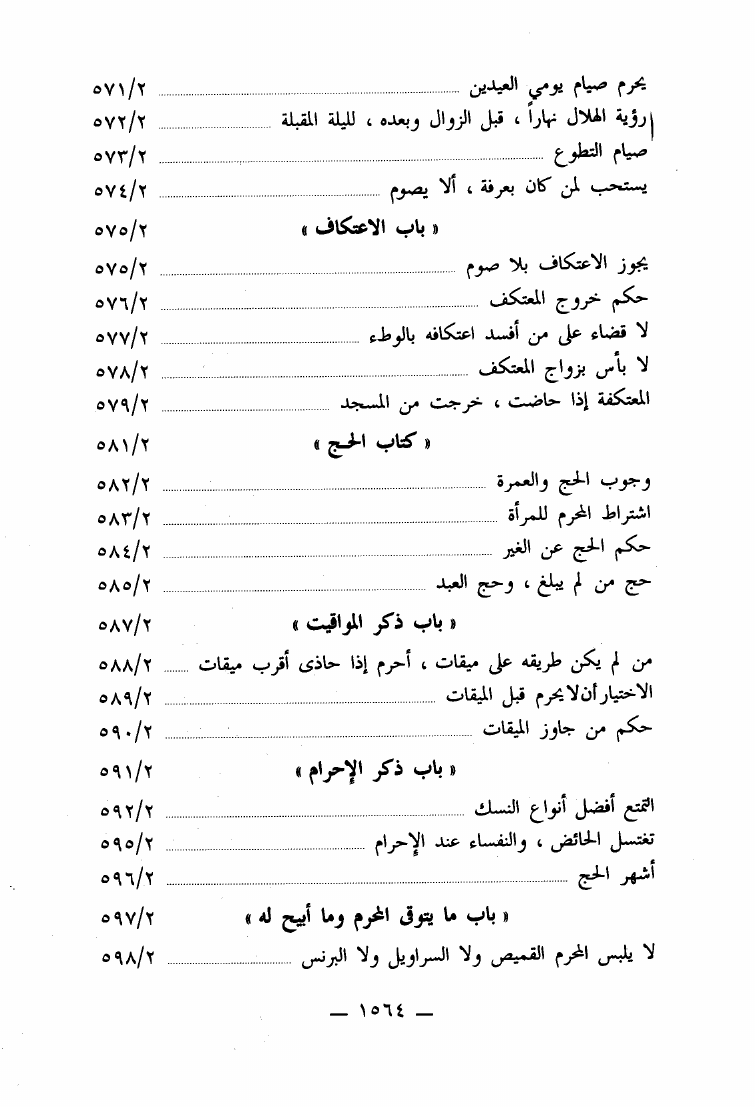 يحرم صيام يومي العيدين ٥٧١/٢
رؤية الهلال نهاراً ، قبل الزوال وبعده ، لليلة المقبلة ٥٧٢/٢
صيام التطوع ٥٧٣/٢
يستحب لمن كان بعرفة ، ألا يصوم ٥٧٤/٢
« باب الاعتكاف » ٥٧٥/٢
يجوز الاعتكاف بلا صوم ٥٧٥/٢
حكم خروج المعتكف ٥٧٦/٢
لا قضاء على من أفسد اعتكافه بالوطء ٥٧٧/٢
لا بأس بزواج المعتكف ٥٧٨/٢
المعتكفة إذا حاضت ، خرجت من المسجد ٥٧٩/٢
« كتاب الحج » ٥٨١/٢
وجوب الحج والعمرة ٥٨٢/٢
اشتراط المحرم للمرأة ٥٨٣/٢
حكم الحج عن الغير ٥٨٤/٢
حج من لم يبلغ ، وحج العبد ٥٨٥/٢
« باب ذكر المواقيت » ٥٨٧/٢
من لم يكن طريقه على ميقات ، أحرم إذا حاذى أقرب ميقات ٥٨٨/٢
الاختيار أن لا يحرم قبل الميقات ٥٨٩/٢
حكم من جاوز الميقات ٥٩٠/٢
« باب ذكر الإحرام » ٥٩١/٢
التمتع أفضل أنواع النسك ٥٩٢/٢
تغتسل الحائض ، والنفساء عند الإحرام ٥٩٥/٢
أشهر الحج ٥٩٦/٢
« باب ما يتوقى المحرم وما أبيح له » ٥٩٧/٢
لا يلبس المحرم القميص ولا السراويل ولا البرنس ٥٩٨/٢
— ١٥٦٤ —